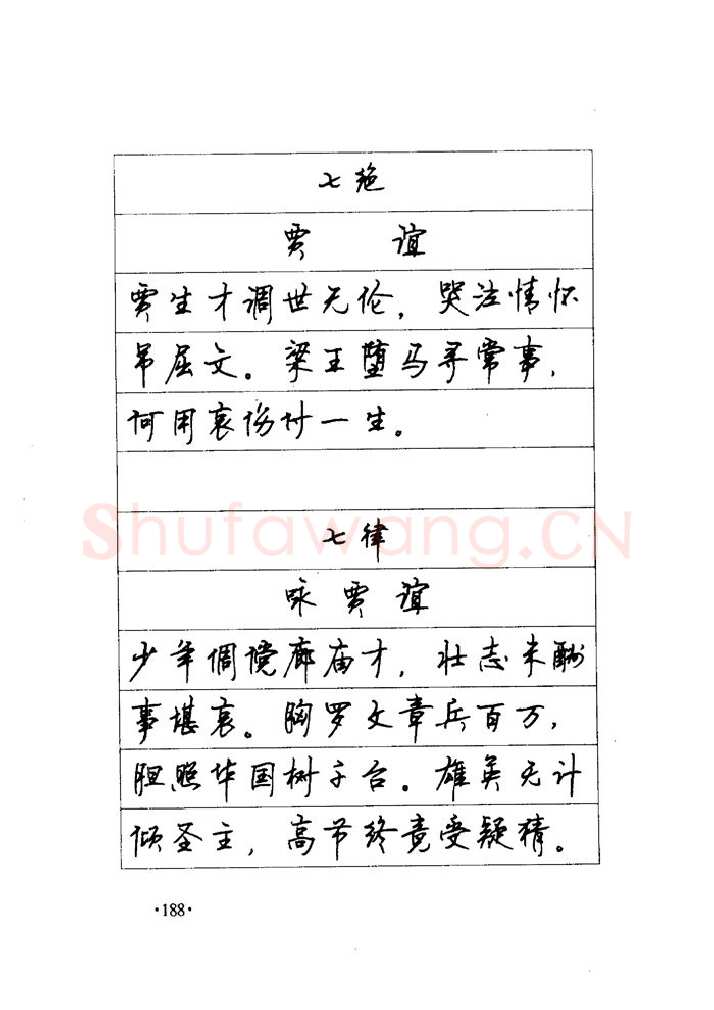 七绝
贾 谊
贾生才调世无伦，哭泣情怀
吊屈文。梁王堕马寻常事，
何用哀伤付一生。
ShufaWang.CN
七律
咏贾谊
少年倜傥廊庙才，壮志未酬
事堪哀。胸罗文章兵百万，
胆照华国树千台。雄英无计
倾圣主，高节终竟受疑猜。
·188·